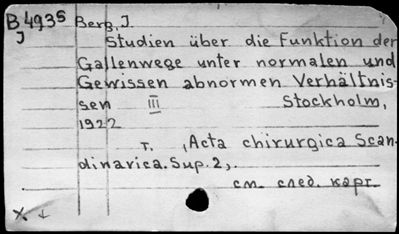 B 4935 Berg, J.
J Studien über die Funktion der
Gallenwege unter normalen und
Gewissen abnormen Verhältnis-
sen III Stockholm,
1922
т. ,Acta chirurgica Scan-
dinavica. Sup. 2,.
см. след. карт.